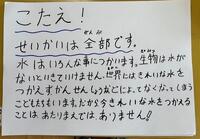 こたえ!
せいかいは全部です。
水はいろんな事につかいます。生物は水が
ないといきていけません。世界にはきれいな水を
つかえずかんせんしょうなどによってなくなってしまう
こどもたちもいます。だから今きれいな水をつかえる
ことは、あたりまえでは、ありません!